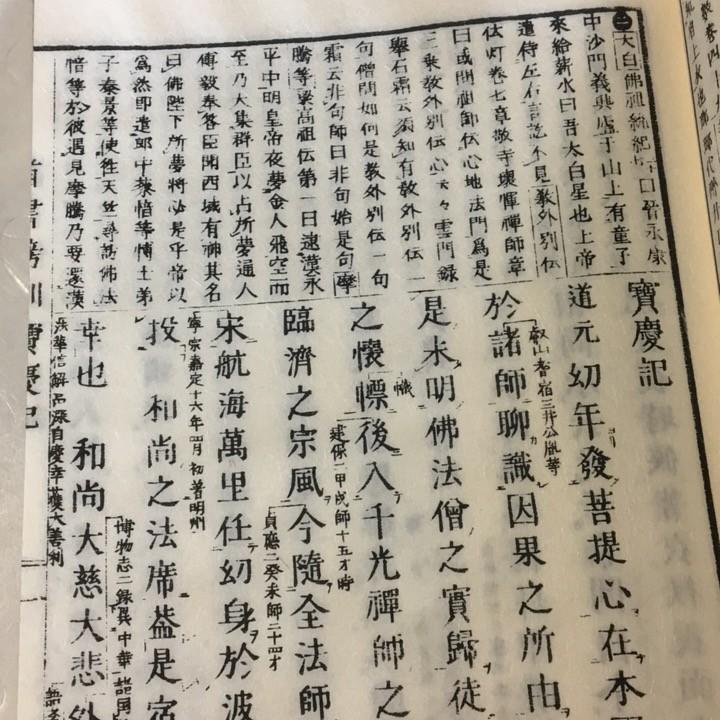 大白佛祖統紀曰晉永康
中沙門義興廬于山上有童子
來給薪水曰吾太白星也上帝
遣侍左右言訖不見教外別伝
伝灯卷七章敬寺懷惲禪師章
曰或問祖師伝心地法門爲是
三乗教外別伝心云々雲門録
擧石霜云須知有教外別伝一
句僧問如何是教外別伝一句
霜云非句師曰非句始是句摩
騰等梁高祖伝第一曰逮漢永
平中明皇帝夜夢金人飛空而
至乃大集群臣以占所夢通人
傅毅奉答臣聞西域有神其名
曰佛陛下所夢將必是乎帝以
爲然即遣郎中蔡愔等博士弟
子秦景等使徃天竺尋訪佛法
愔等於彼遇見摩騰乃要還漢
寶慶記
道元幼年發菩提心在本
叡山耆宿三井公胤等
於諸師聊識因果之所由
是未明佛法僧之實歸徒
幟
之懷慓後入千光禪師之
建保二甲戌師十五才時
臨濟之宗風今隨全法師
貞應二癸未師二十四才
宋航海萬里任幻身於波
寧宗嘉定十六年四月初着明州
投和尚之法席蓋是宿
博物志二録異中華諸国
幸也和尚大慈大悲外
法華信解品深自慶幸獲大善利
寶慶記